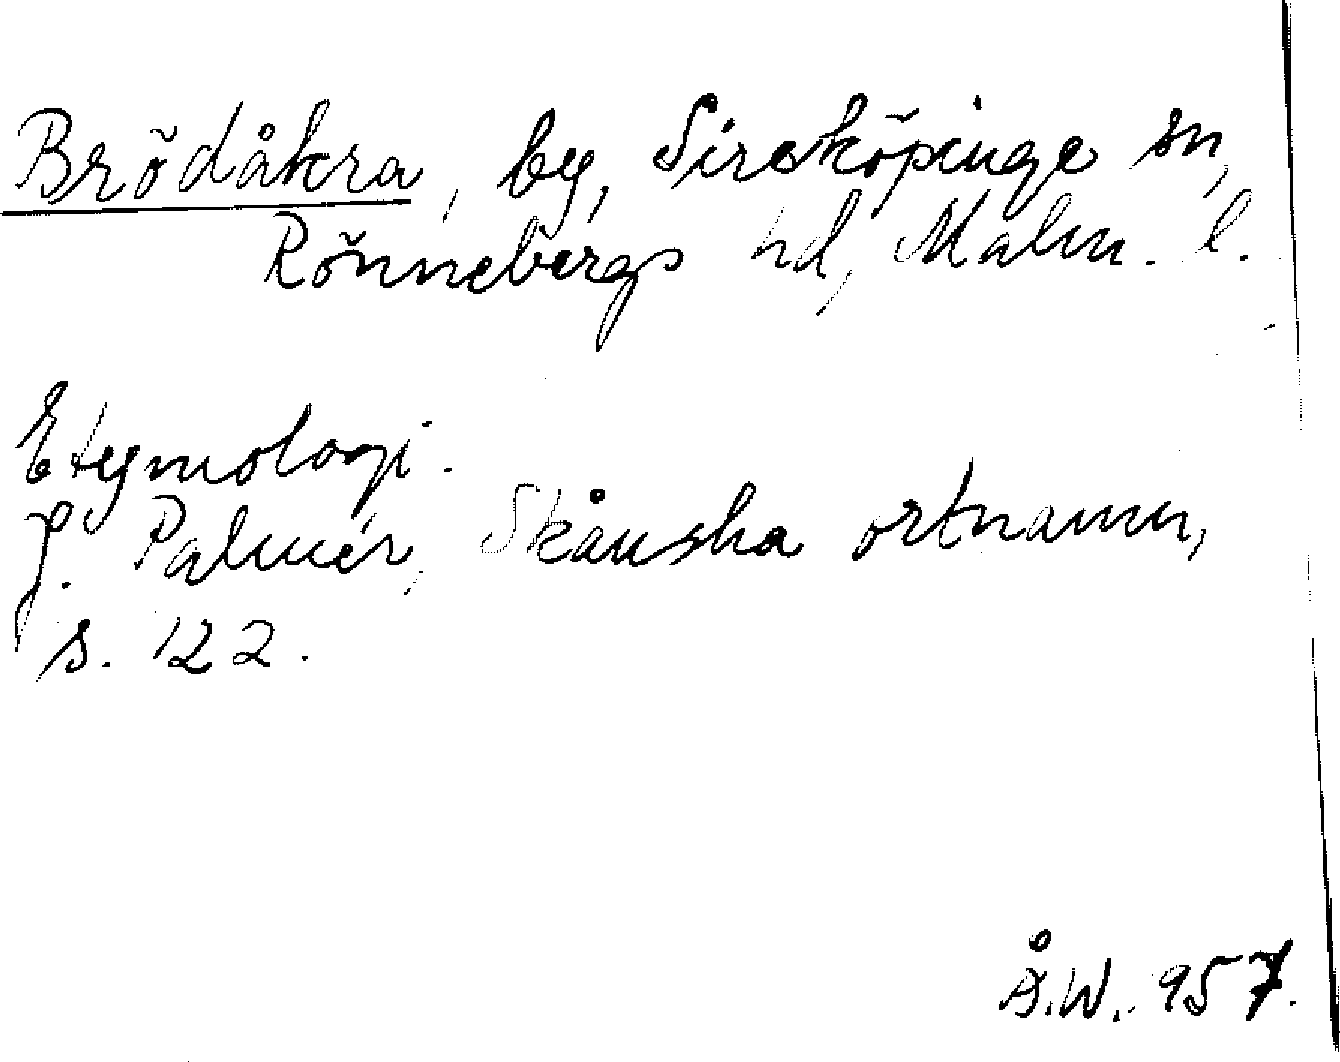 Brödåkra, by, Sireköpinge sn,
Rönnebergs hd, Malm. l.
Etymologi.
J. Palmér, Skånska ortnamn,
s. 122.
Å.W. 957.